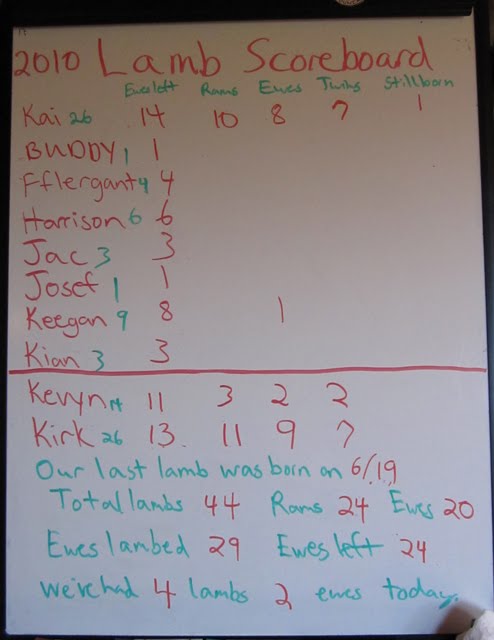 2010 Lamb Scoreboard
Ewes left Rams Ewes Twins Stillborn
Kai 26 14 10 8 7 1
BUDDY 1 1
Fflergant 4 4
Harrison 6 6
Jac 3 3
Josef 1 1
Keegan 9 8 1
Kian 3 3
Kevyn 14 11 3 2 2
Kirk 26 13 11 9 7
Our last lamb was born on 6/19
Total lambs 44 Rams 24 Ewes 20
Ewes lambed 29 Ewes left 24
we've had 4 lambs 2 ewes today.